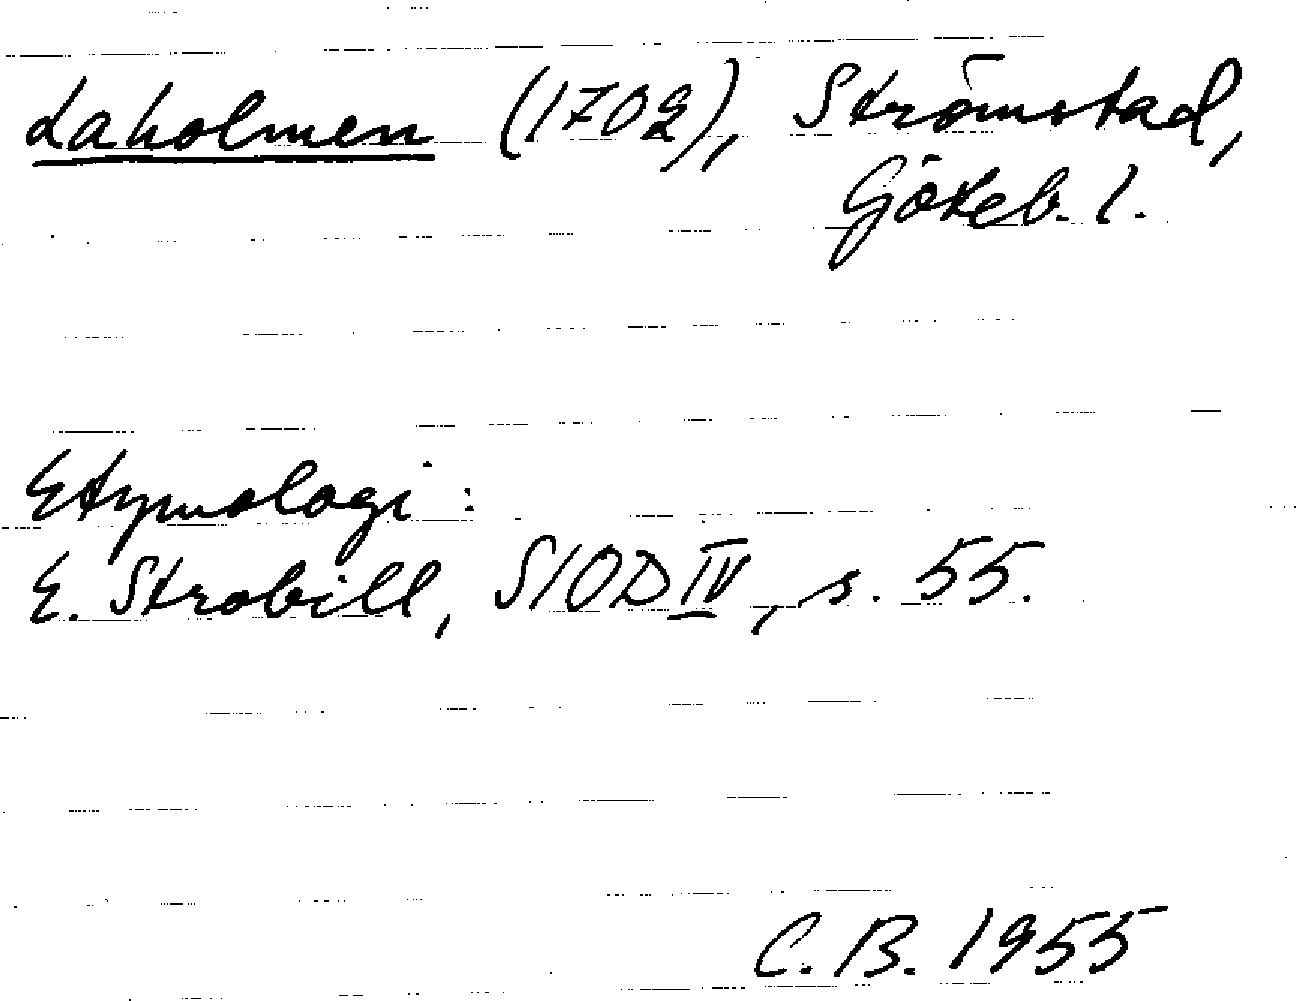 Laholmen (1702), Strömstad,
Göteb. l.
Etymologi:
E. Strobill, SIOD IV, s. 55.
C. B. 1955